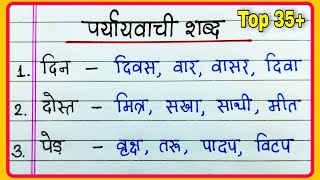 Top 35+
पर्यायवाची शब्द
1. दिन – दिवस, वार, वासर, दिवा
2. दोस्त – मित्र, सखा, साथी, मीत
3. पेड़ – वृक्ष, तरू, पादप, विटप